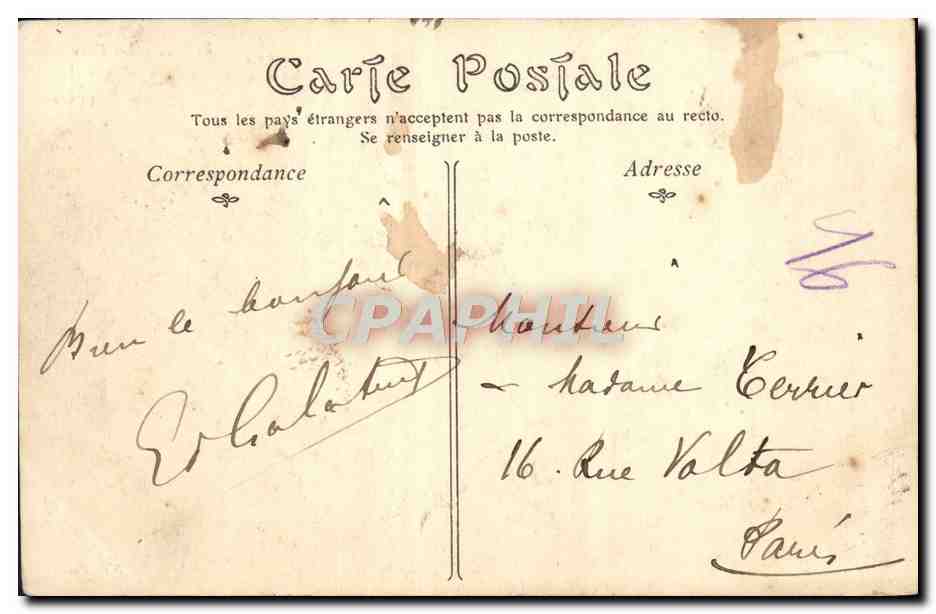 Carte Postale
Tous les pays étrangers n'acceptent pas la correspondance au recto.
Se renseigner à la poste.
Correspondance
Adresse
Bien le bonjour
16
CPAPHIL
Monsieur
Madame Terrier
16. Rue Volta
Paris